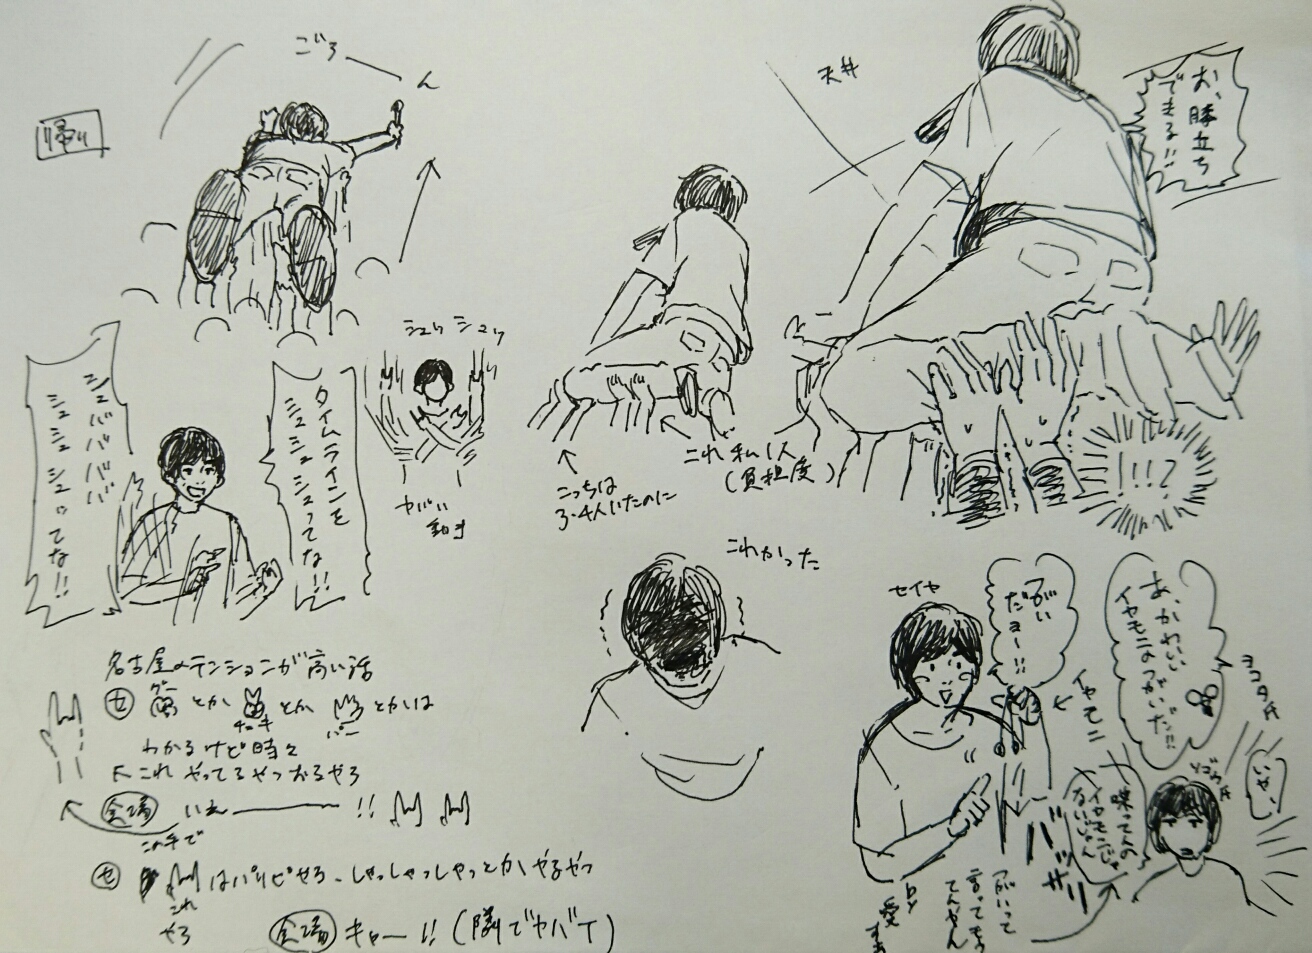 帰り
ごろ――ん
天井
お、膝立ち
できる!!
シュッ シュッ
ヤバい
動き
タイムラインを
シュシュシュってな!!
シュババババ
シュシュシュってな!!
これ 私1人
(負担度)
こっちは
3・4人いたのに
!!!?
これかった
名古屋のテンションが高い話
セ グー とか チョキ とか パー とかは
わかるけど時々
これ やってるやつおるやろ
会場 いえ――――!!
この手で
セ はパリピやろ、しゃっしゃっしゃっとか やるやつ
これ
やろ
会場 キャー!! (隣でヤバイ)
セイヤ
がい
だョー!!
イヤモニ
あ、かわいい
イヤモニのがいだ!!
ヨコタ氏
ソゴウ氏
いや、
喋ってんの
イヤモニじゃ
ないじゃん
バッサリ
がいって
言ってもう
てんやん
by
愛すぁ